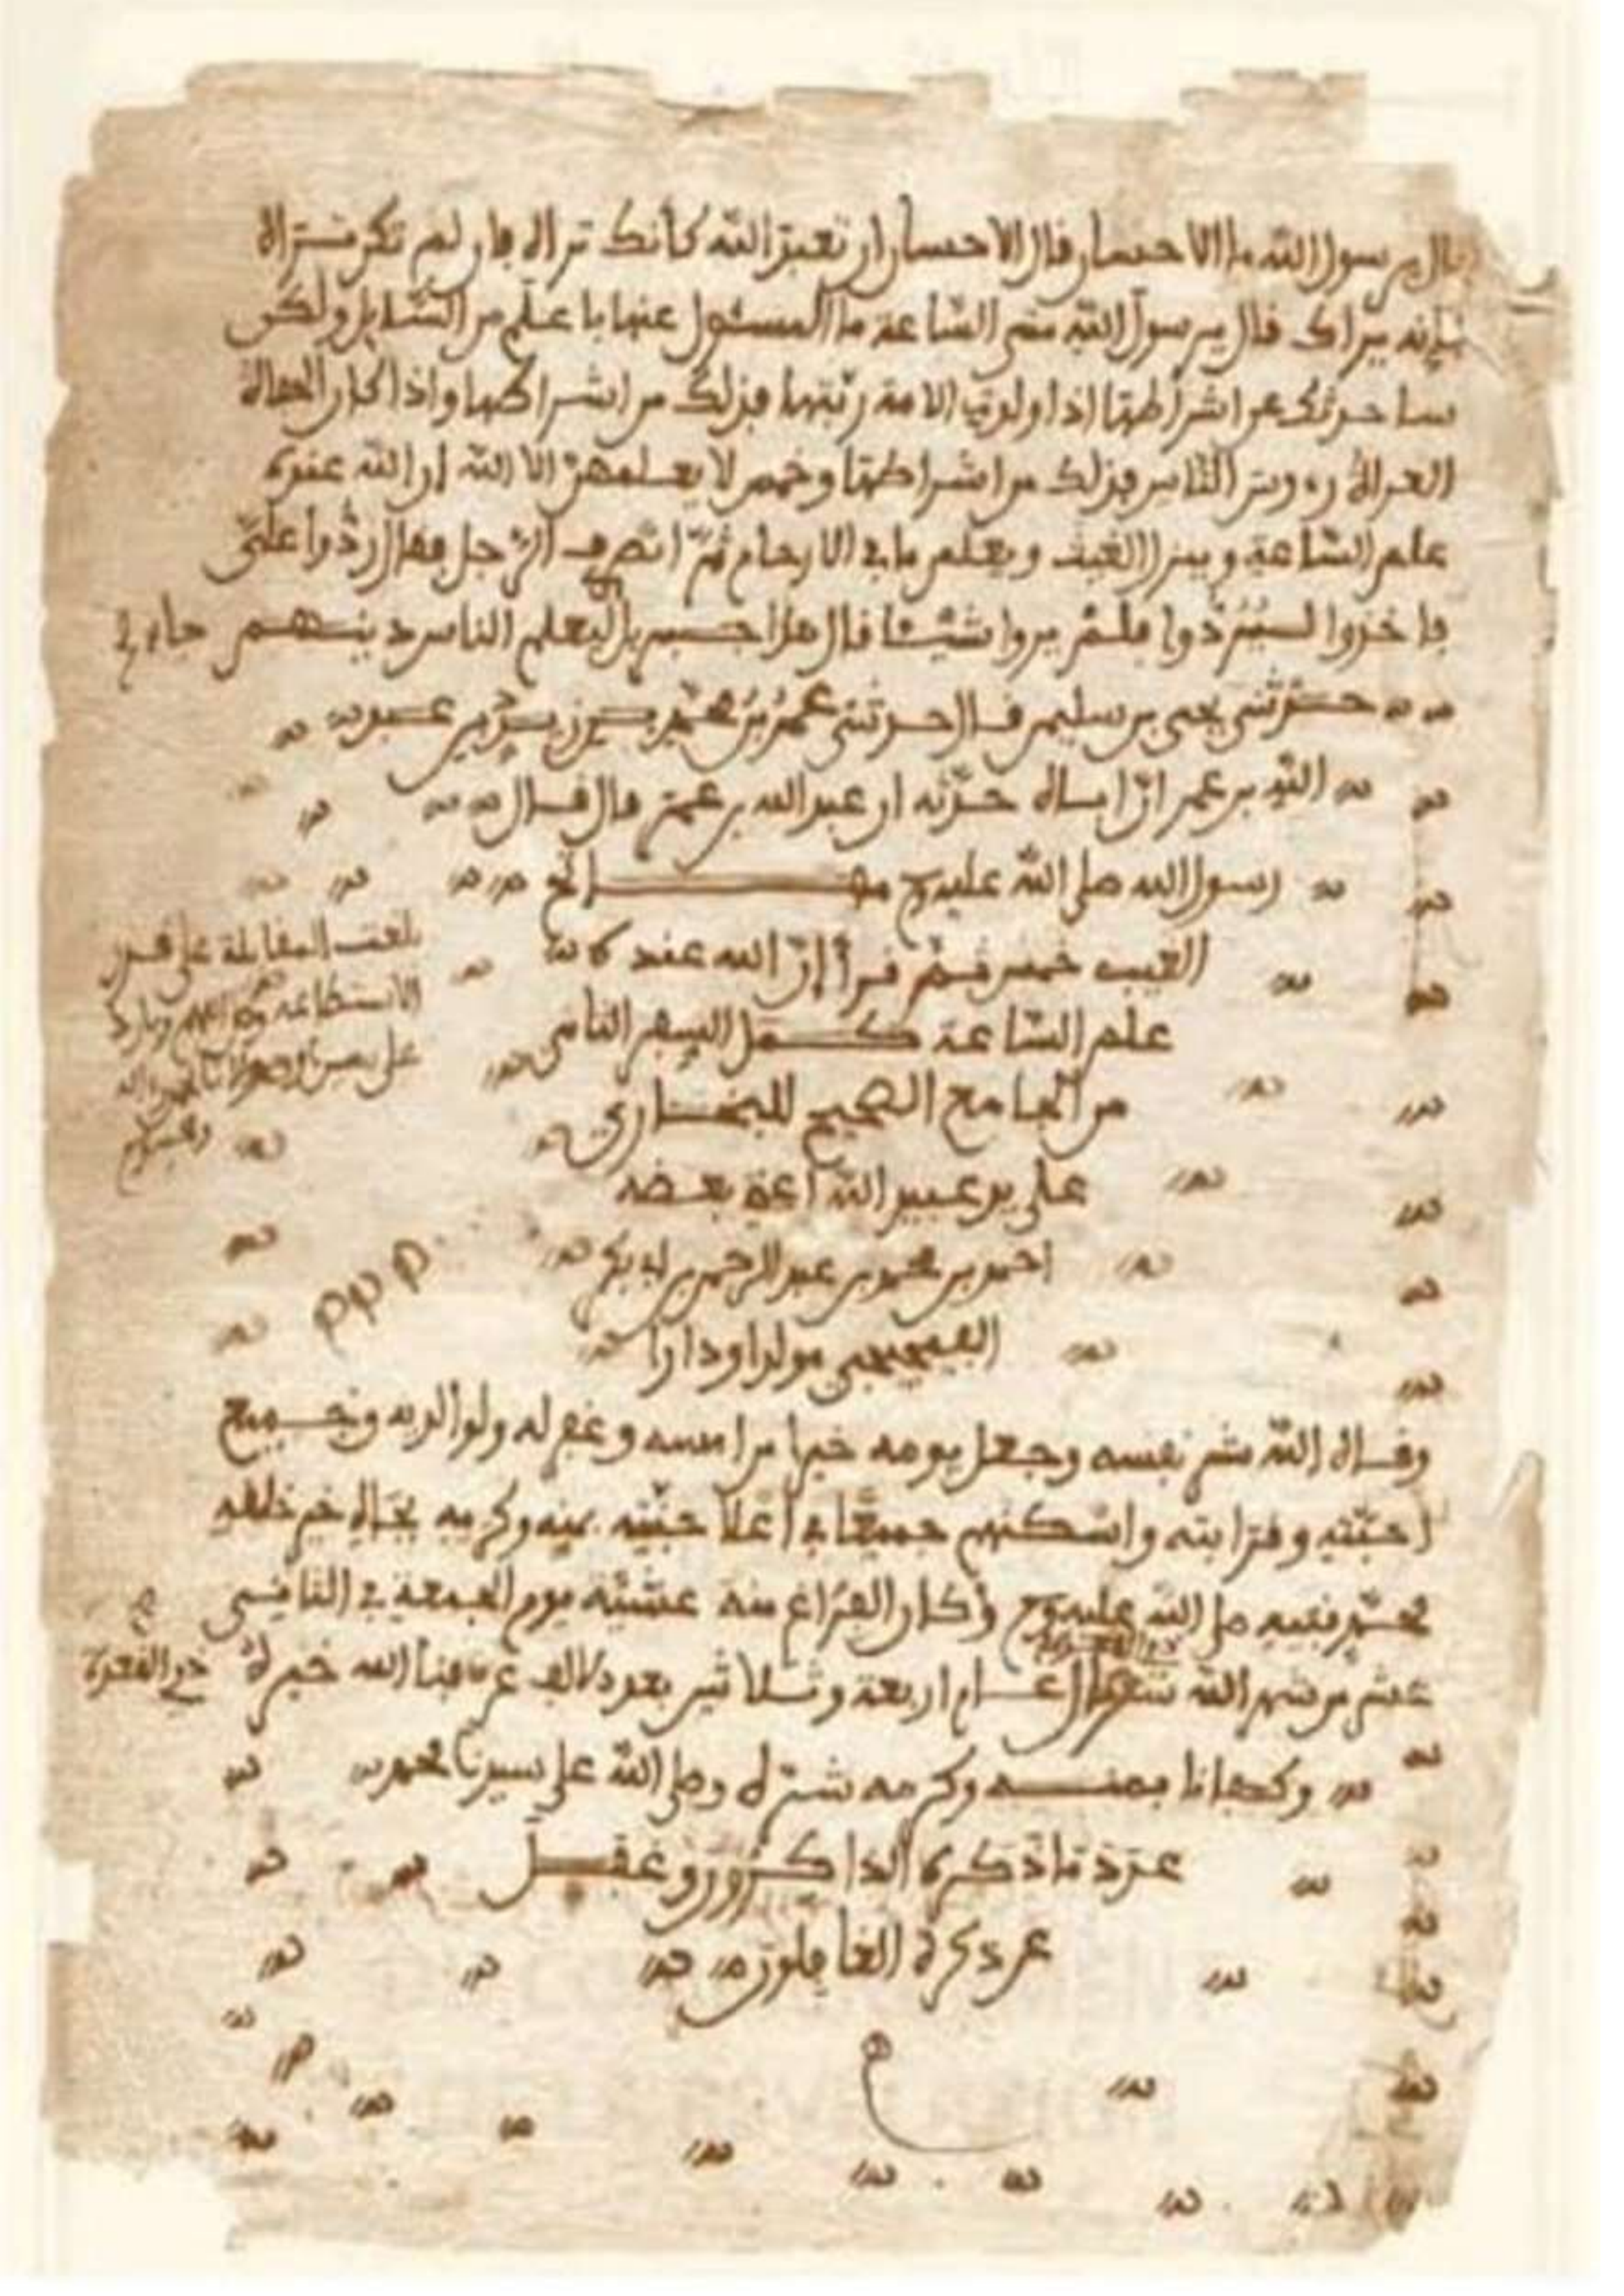 قال يرسول الله ما الاحسان قال الاحسان ان تعبد الله كأنك تراه فان لم تكن تراه
فإنه يراك قال يرسول الله متى الساعة ما المسئول عنها باعلم من السايل ولكن
ساحدثك عن اشراطها اذا ولدت الامة ربتها فذلك من اشراطها واذا كان الحفاة
العراة رءوس الناس فذلك من اشراطها وخمس لا يعلمهن الا الله ان الله عنده
علم الساعة وينزل الغيث ويعلم ما في الارحام ثم انصرف الرجل فقال ردوا علي
فاخذوا ليردوا فلم يروا شيئا فال هذا جبريل ليعلم الناس دينهم
حدثني يحيى بن سليمن فال حدثني عمر بن محمد بن زيد بن عبد
الله بن عمر ان اباه حدثه ان عبد الله بن عمر فال فال
رسول الله صلى الله عليه مفاتح
الغيب خمس ثم فرأ ان الله عنده
علم الساعة كمل السفر الثامن
من الجامع الصحيح للبخاري
على يد عبيد الله
احمد بن محمد بن عبد الرحمن بن
مولدا ودارا
وفاه الله شر نفسه وجعل يومه خيرا من امسه وغفر له ولوالديه وجميع
احبته وفرابته واسكنهم جميعا في اعلا جنته بمنه وكرمه بجاه خير خلفه
محمد نبيه صلى الله عليه وكان الفراغ منه عشية يوم الجمعة في الثاني
عشر من شهر الله عام اربعة وثلاثين بعد الف عرفنا الله خيره
وكفانا بمنه وكرمه شره وصلى الله على سيدنا محمد
عدد ما ذكره الذاكرون وغفل
عن ذكره الغافلون
بلغت المفابلة على فدر
الاستطاعة
ذي القعدة